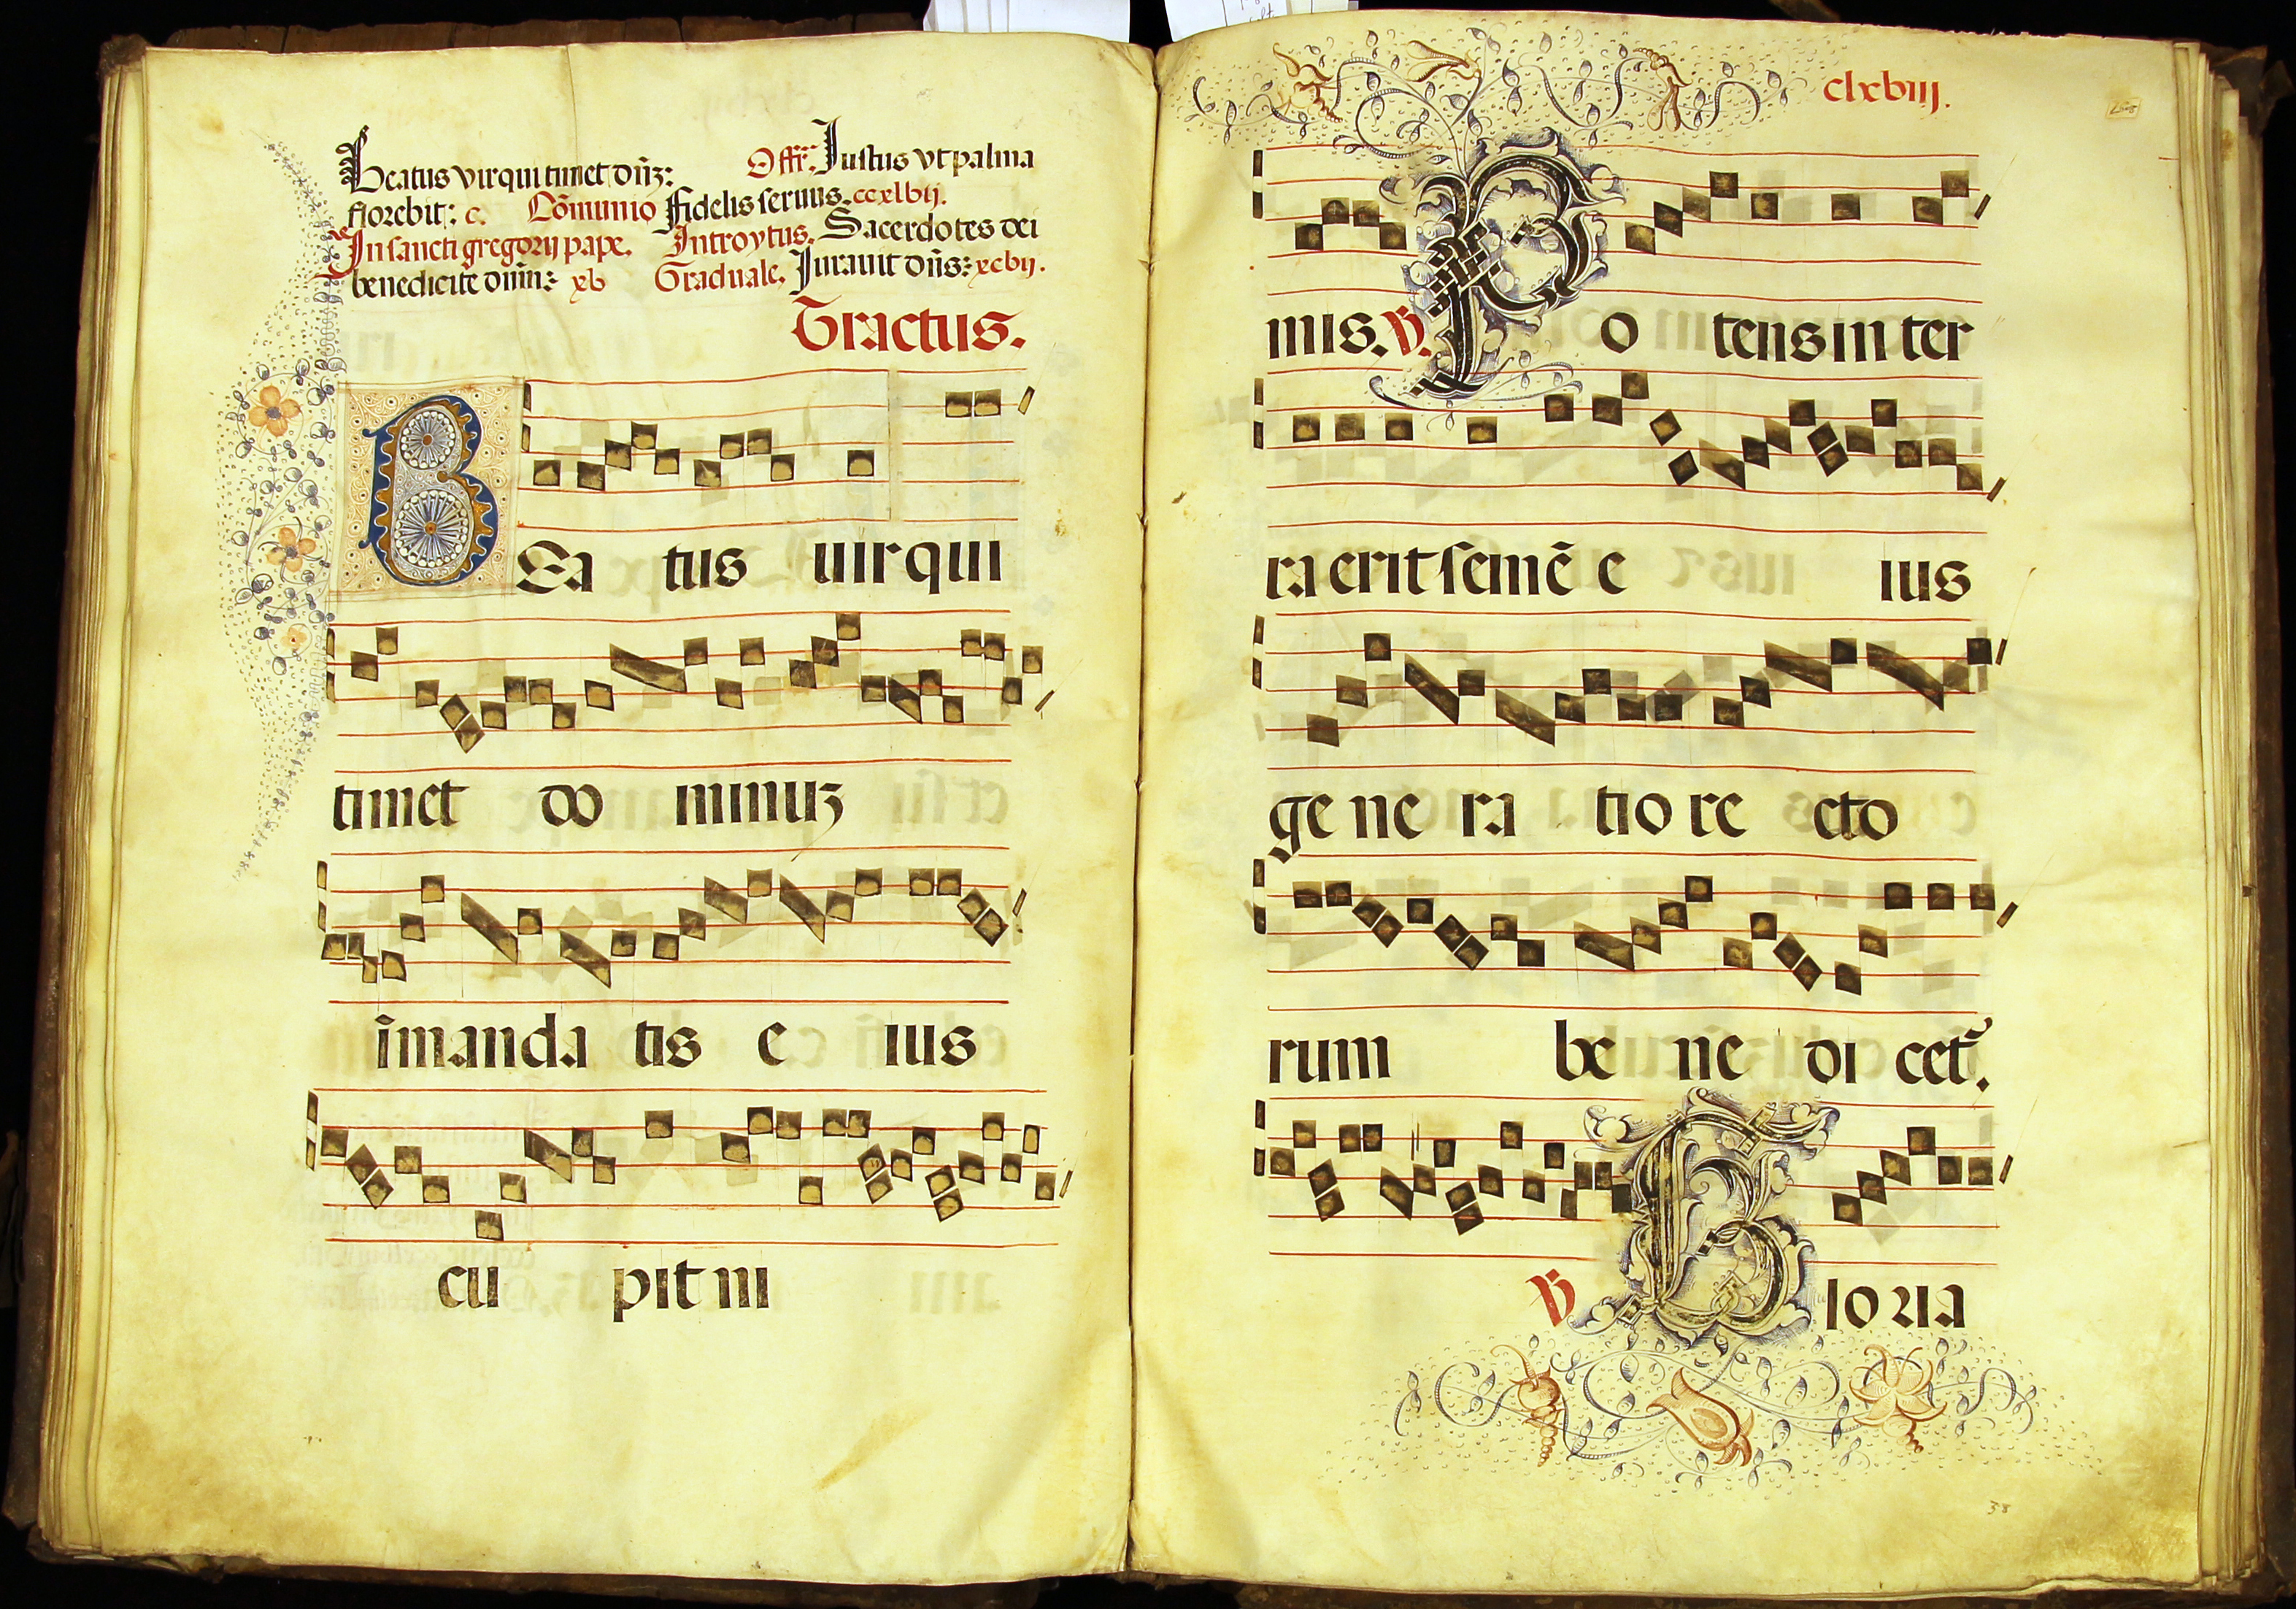 Beatus vir qui timet dñz: Offr̃. Iustus vt palma
florebit: c. Cõmunio Fidelis seruus. ccxlvij.
In sancti gregorij pape. Introytus. Sacerdotes dei
benedicite dñm: xv Graduale. Iurauit dñs: xcvij.
Tractus.
BEa tus uir qui
timet do minuz
ĩ manda tis e ius
cu pit ni
clxviij.
mis. V̄. Po tens in ter
ra erit semẽ e ius
ge ne ra tio re cto
rum be ne di cet᷉.
V̄ Glo ria
38